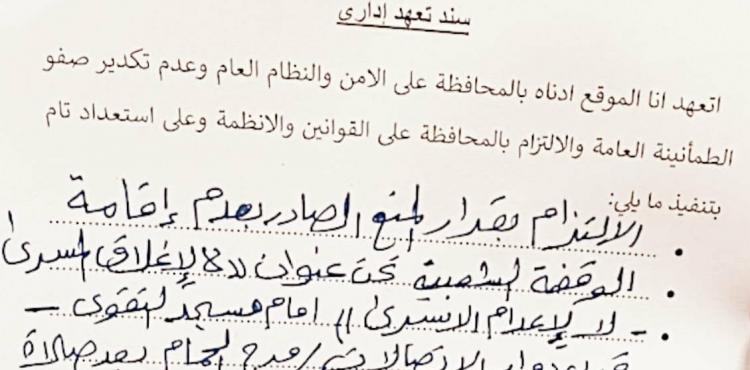 سند تعهد إداري
اتعهد انا الموقع ادناه بالمحافظة على الامن والنظام العام وعدم تكدير صفو
الطمأنينة العامة والالتزام بالمحافظة على القوانين والانظمة وعلى استعداد تام
بتنفيذ ما يلي:
الالتزام بقرار المنع الصادر بعدم إقامة
الوقفة الشعبية تحت عنوان لا لإغلاق المسرى
- لا لإعدام الاسرى // امام مسجد التقوى -
الاتصالات / مرج الحمام بعد صلاة